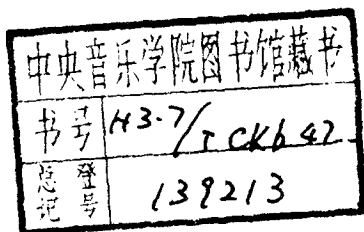 中央音乐学院图书馆藏书
书号 H3-7/TCKb47
总登记号 139213